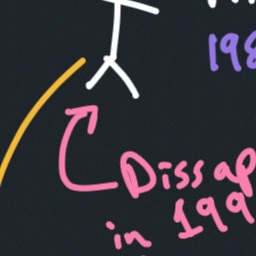 198
Dissap
in 199